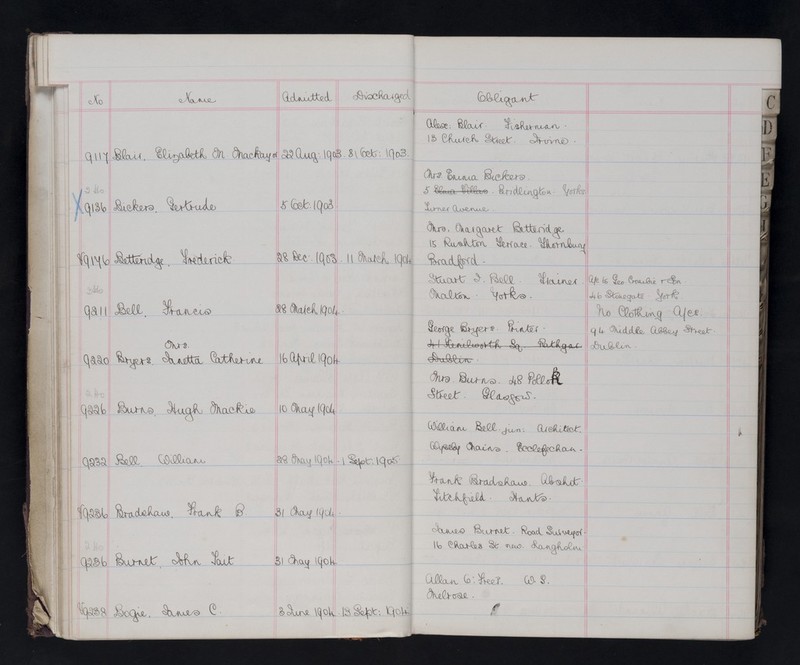 No Name Admitted Discharged Obligant
C
D
F
E
G
J
I
Alexr. Blair Fisherman.
13 Church Street
9117 Blair, Elizabeth M. Mackay or 22 Aug. 1903. 31 Oct. 1903.
Mrs Emma Bickers.
5 Bridlington Yorks
9136 Bickers, Gertrude 5 Oct. 1903 Turner Avenue.
Mrs. Margaret Betteridge
15 Rushton Terrace. Thornbury
9176 Betteridge, Frederick 28 Dec. 1903 11 March 1904 Bradford.
Stuart J. Bell. Trainer
Malton. Yorks.
46 Stonegate York
9211 Bell, Francis 28 March 1904. No Clothing A/cs.
George Bryers. Printer. 94 Middle Abbey Street
Mrs 41 Kenilworth Sq. Rathgar Dublin.
9220 Bryers, Janetta Catherine 16 April 1904 Dublin.
Mrs. Burns. 48 Pollok
Street. Glasgow.
9226 Burns, Hugh Mackie 10 May 1904
William Bell jun: Architect.
Mains. Ecclefechan.
9232 Bell William 28 May 1904. 1 Sept. 1905
Frank Bradshaw.
Titchfield. Hants.
9236 Bradshaw, Frank B 31 May 1904.
James Burnet. Road Surveyor.
16 Charles St new. Langholm
9236 Burnet, John Tait 31 May 1904
Allan W. S.
Melrose.
9238 Bogie, James C. 3 June 1904. Sept: 1904.